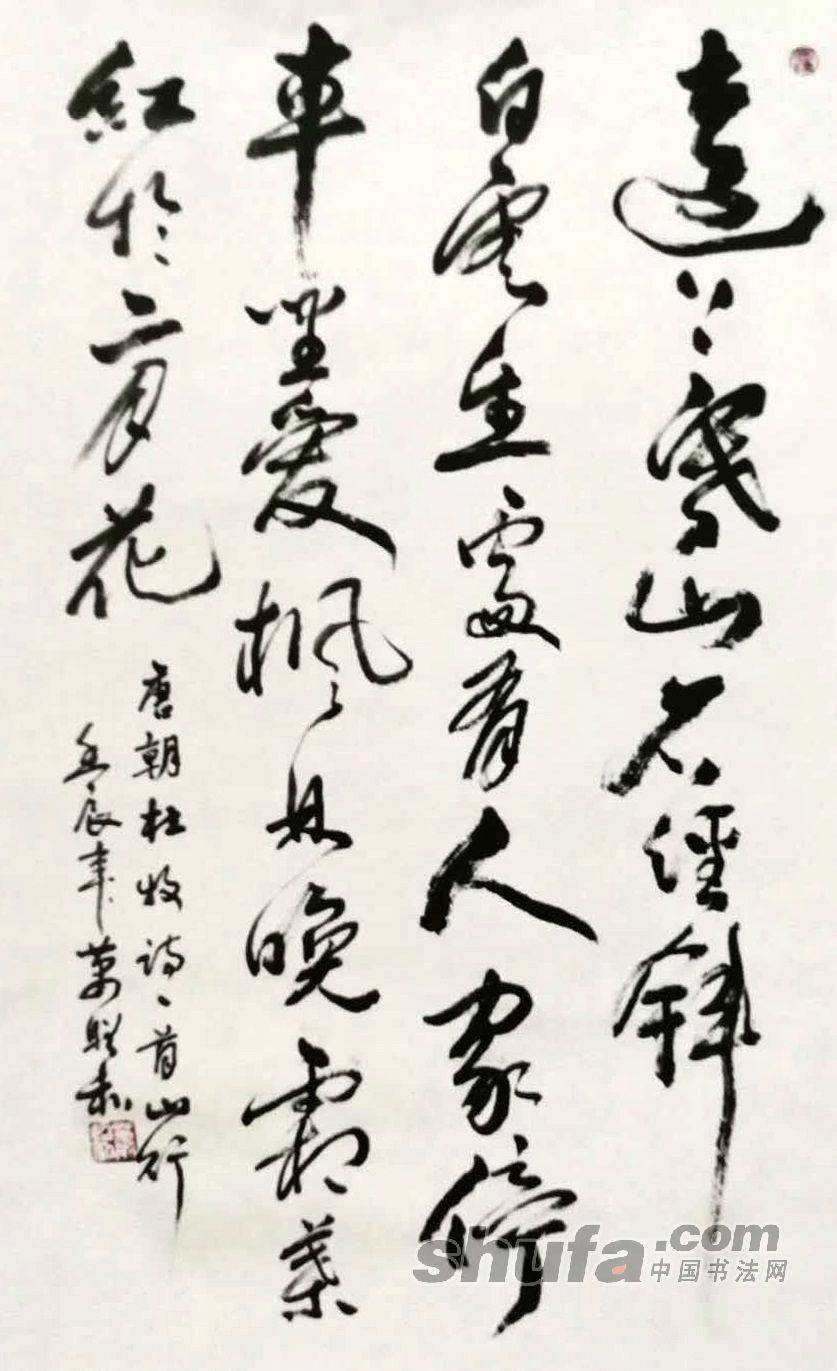 遠上寒山石徑斜
白雲生處有人家停
車坐愛楓林晚霜葉
紅於二月花
唐朝杜牧诗一首山行
壬辰年
shufa.com
中国书法网